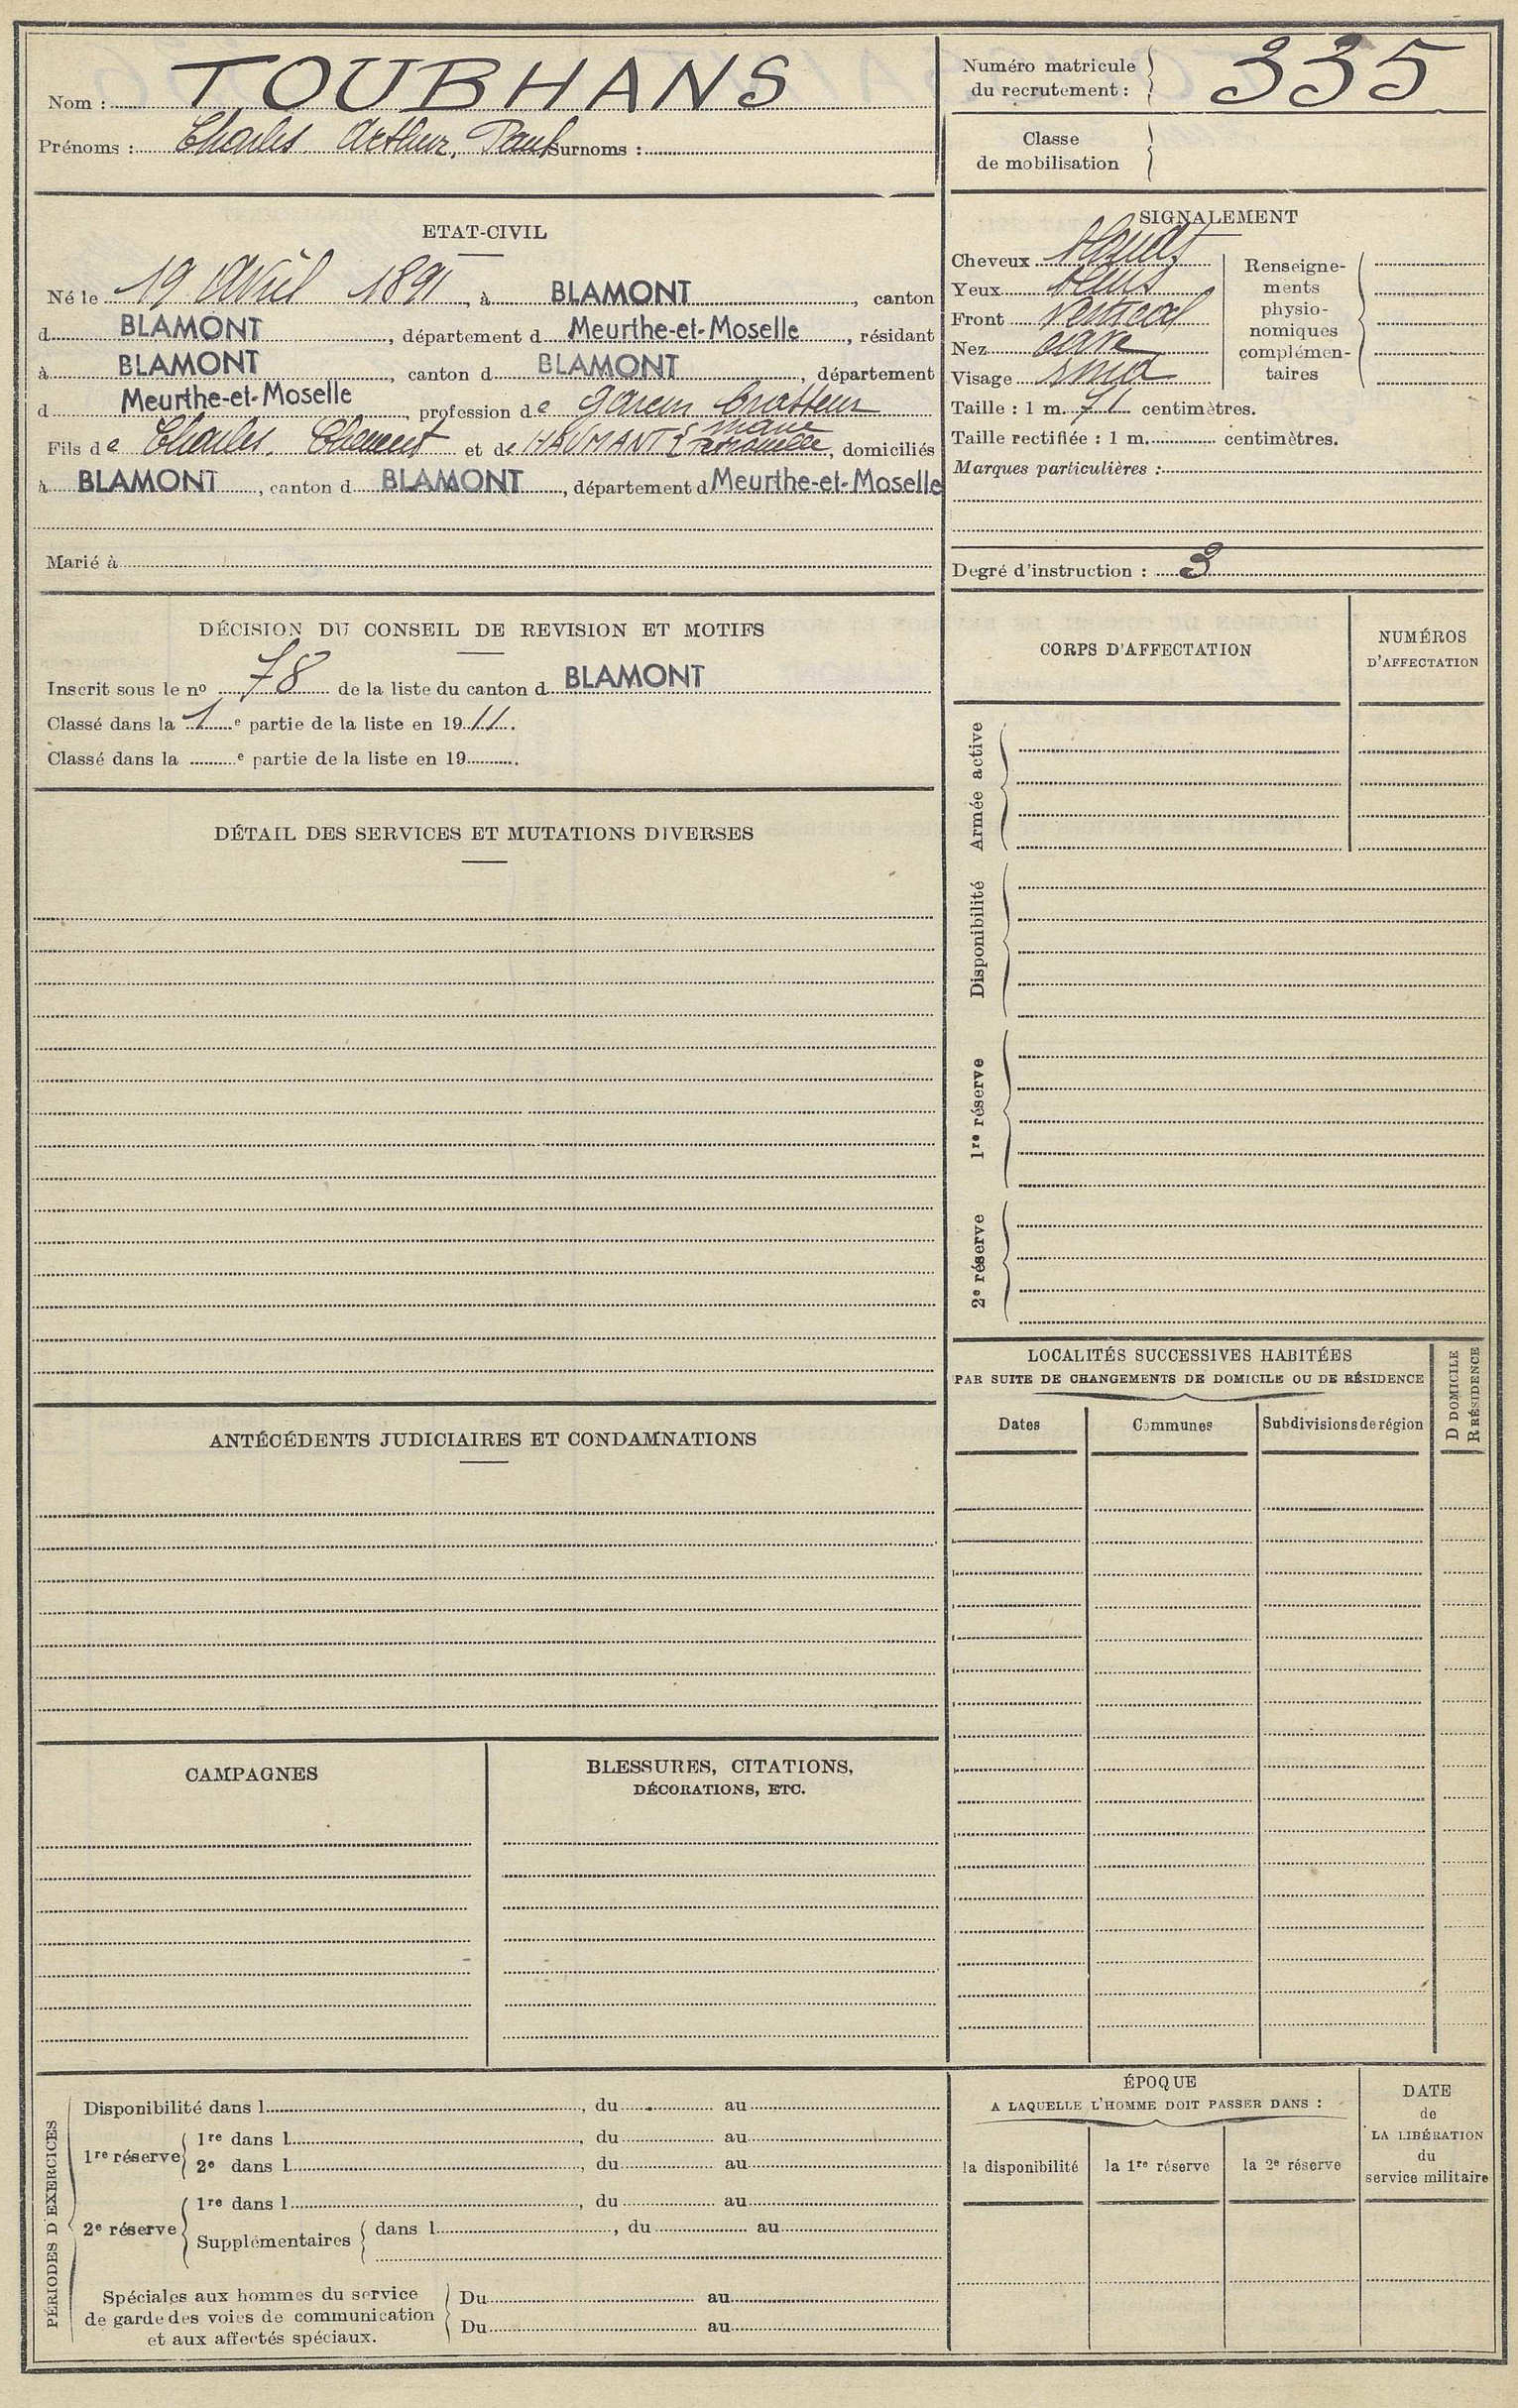 Nom : TOUBHANS
Prénoms : Charles Arthur, Paul Surnoms :
Numéro matricule
du recrutement : 335
Classe
de mobilisation
ETAT-CIVIL
Né le 19 Avril 1891, à BLAMONT, canton
d BLAMONT, département d Meurthe-et-Moselle, résidant
à BLAMONT, canton d BLAMONT, département
d Meurthe-et-Moselle, profession de garçon brasseur
Fils de Charles Clément et de HAUMANT Marie, domiciliés
à BLAMONT, canton d BLAMONT, département d Meurthe-et-Moselle
Marié à
SIGNALEMENT
Cheveux blonds
Yeux bleus
Front vertical
Nez cave
Visage rond
Renseigne-
ments
physio-
nomiques
complémen-
taires
Taille : 1 m. 71 centimètres.
Taille rectifiée : 1 m. centimètres.
Marques particulières :
Degré d'instruction : 3
DÉCISION DU CONSEIL DE REVISION ET MOTIFS
Inscrit sous le nº 78 de la liste du canton d BLAMONT
Classé dans la 1e partie de la liste en 1911.
Classé dans la e partie de la liste en 19 .
DÉTAIL DES SERVICES ET MUTATIONS DIVERSES
ANTÉCÉDENTS JUDICIAIRES ET CONDAMNATIONS
CAMPAGNES
BLESSURES, CITATIONS,
DÉCORATIONS, ETC.
CORPS D'AFFECTATION
NUMÉROS
D'AFFECTATION
Armée active
Disponibilité
1re réserve
2e réserve
LOCALITÉS SUCCESSIVES HABITÉES
PAR SUITE DE CHANGEMENTS DE DOMICILE OU DE RÉSIDENCE
D DOMICILE
R RÉSIDENCE
Dates
Communes
Subdivisions de région
PÉRIODES D'EXERCICES
Disponibilité dans l , du au
1re réserve
1re dans l , du au
2e dans l , du au
2e réserve
1re dans l , du au
Supplémentaires dans l , du au
Spéciales aux hommes du service
de garde des voies de communication
et aux affectés spéciaux.
Du au
Du au
ÉPOQUE
A LAQUELLE L'HOMME DOIT PASSER DANS :
la disponibilité
la 1re réserve
la 2e réserve
DATE
de
LA LIBÉRATION
du
service militaire